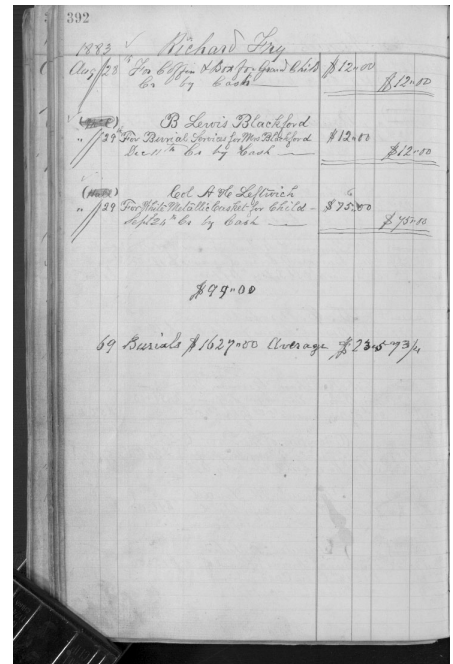 392
1883 ✓ Richard Fry
Aug/28 " For Coffin & Box for Grand Child $12=00
Cr by Cash $12=00
B Lewis Blackford
" /29 th For Burial Services for Mrs Blackford $12=00
Dec 11th Cr by Cash $12=00
Col A H Leftwich
" /29 For White Metallic Casket for Child $75=00
Sept 24th Cr by Cash $75=00
$99=00
69 Burials $1627=00 Average $23=